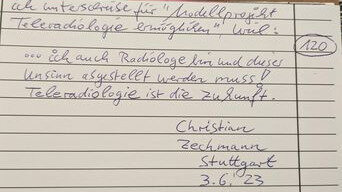 ich unterschreibe für "Modellprojekt
Teleradiologie ermöglichen" weil:
120
... ich auch Radiologe bin und dieser
Unsinn abgestellt werden muss!
Teleradiologie ist die Zukunft.
Christian
Zechmann
Stuttgart
3.6.'23